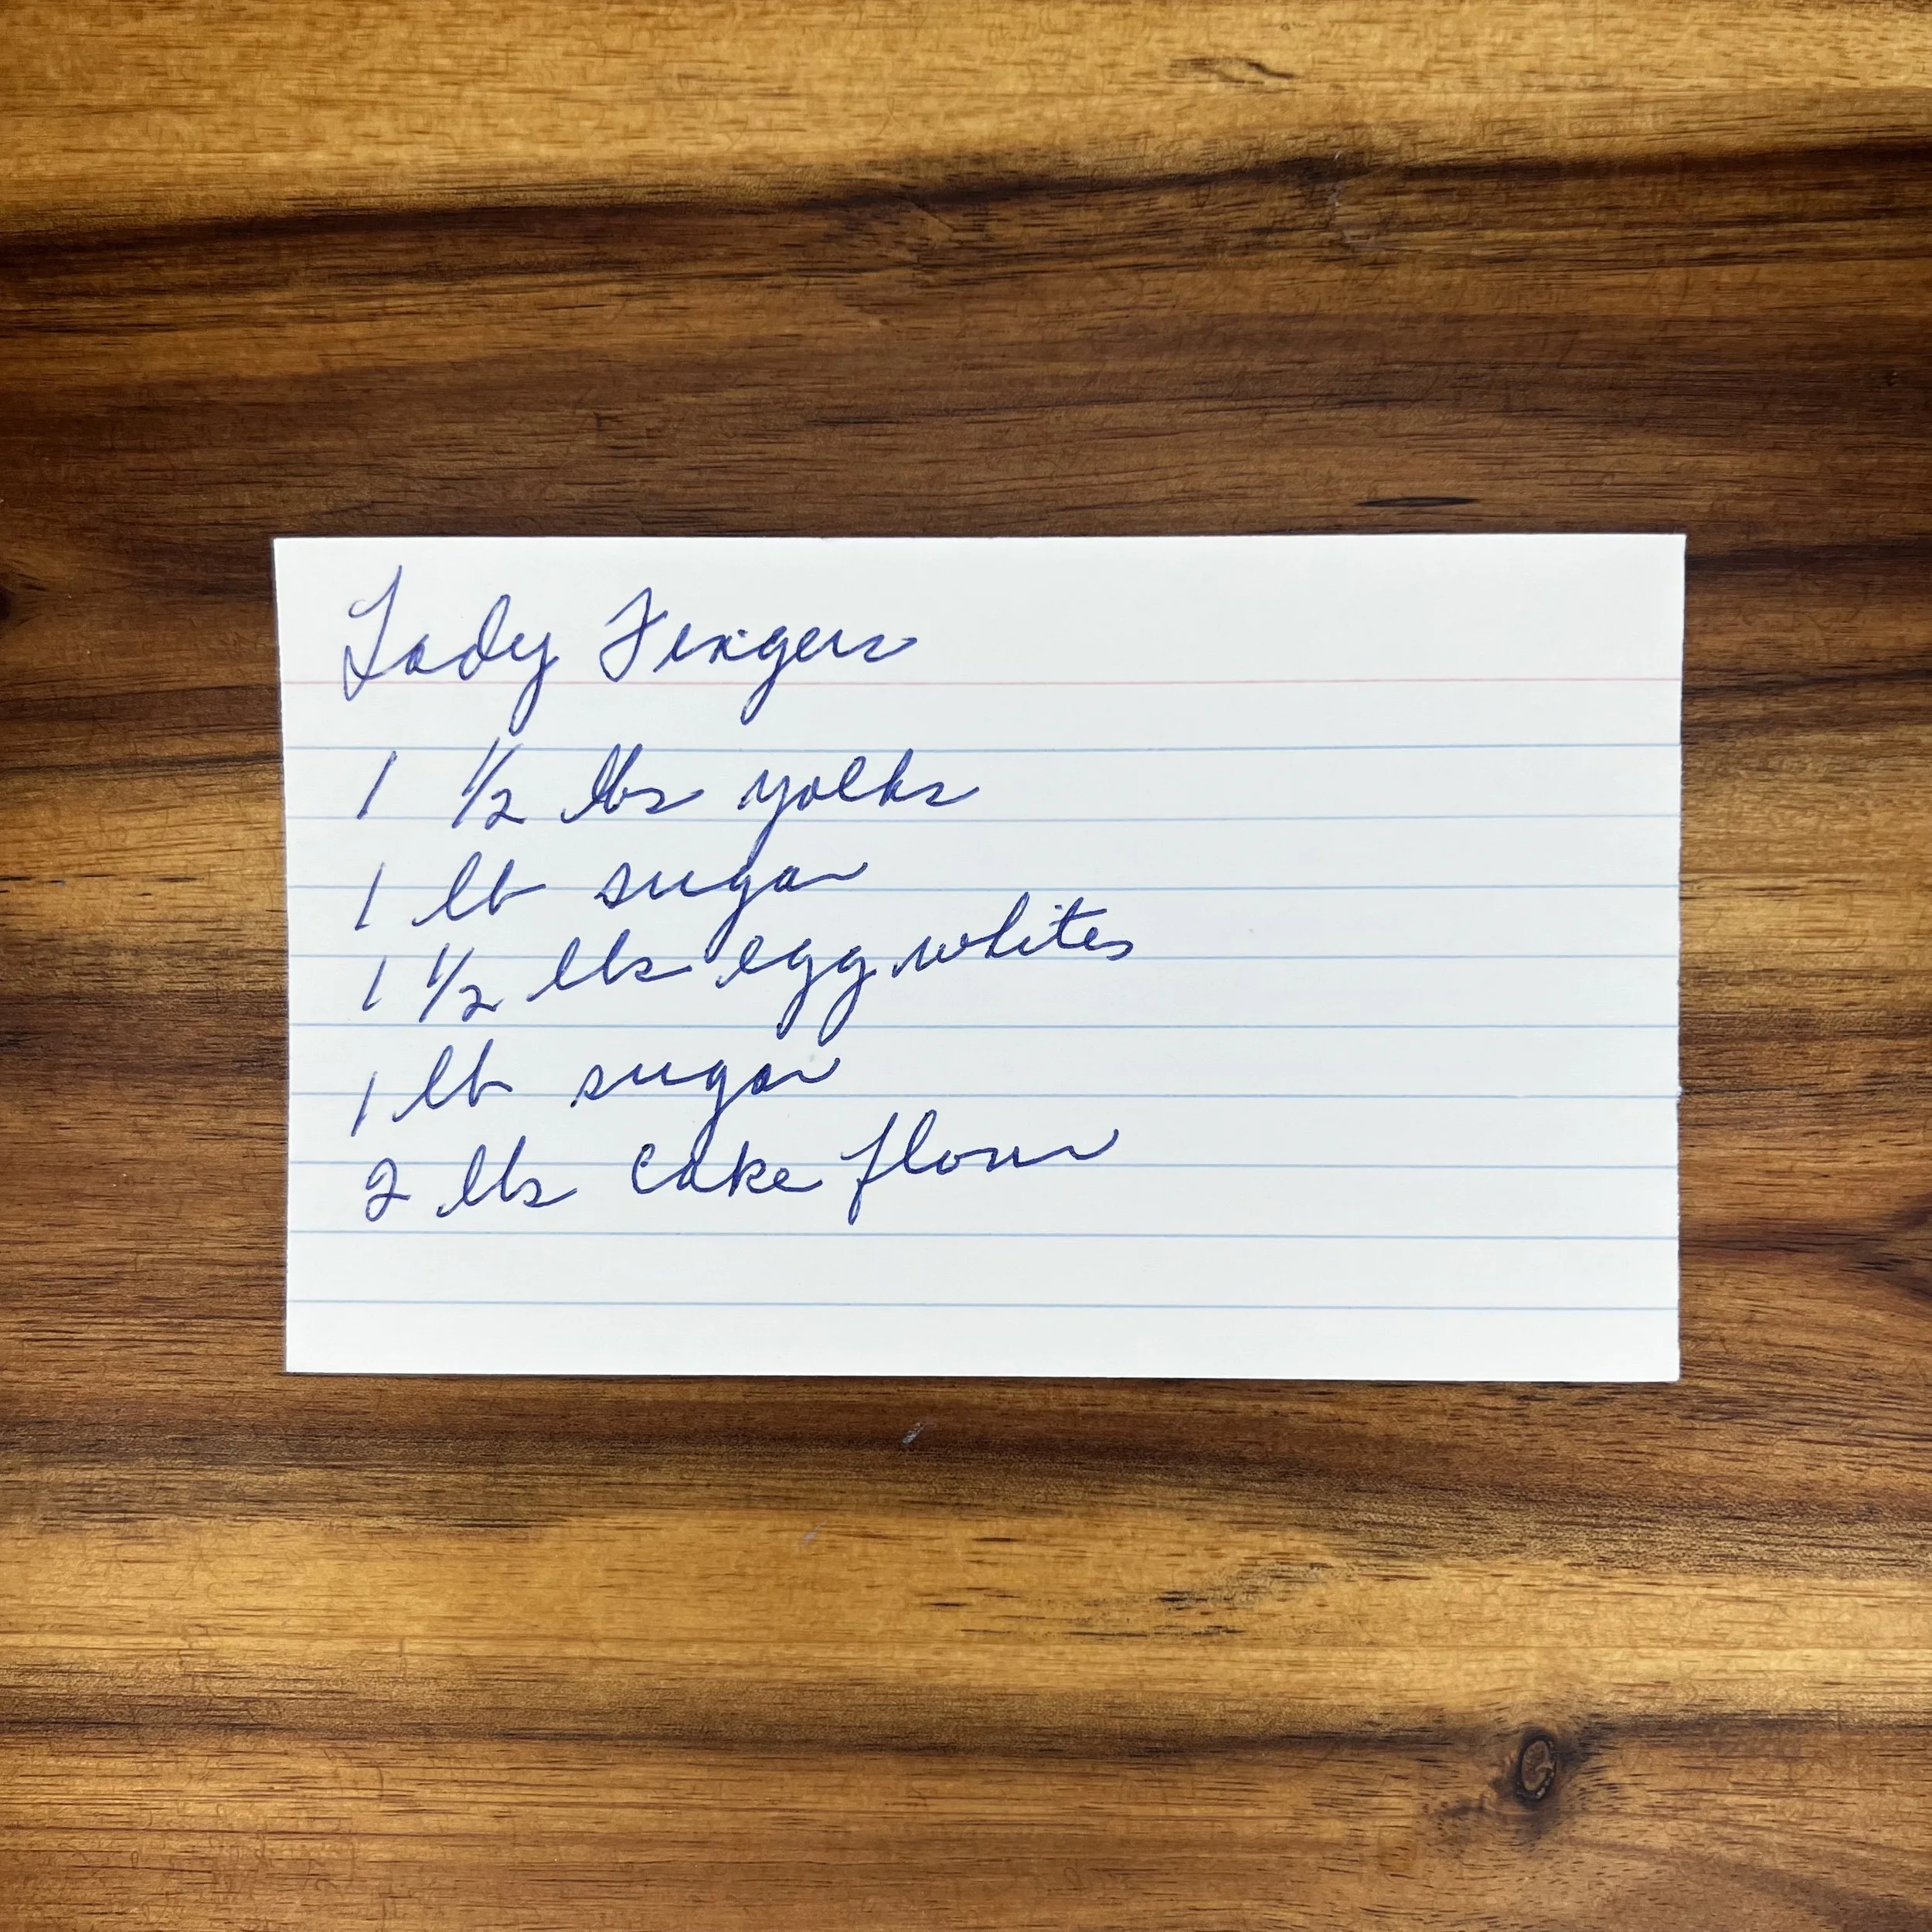 Lady Fingers
1 1/2 lbs yolks
1 lb sugar
1 1/2 lbs egg whites
1 lb sugar
2 lbs cake flour